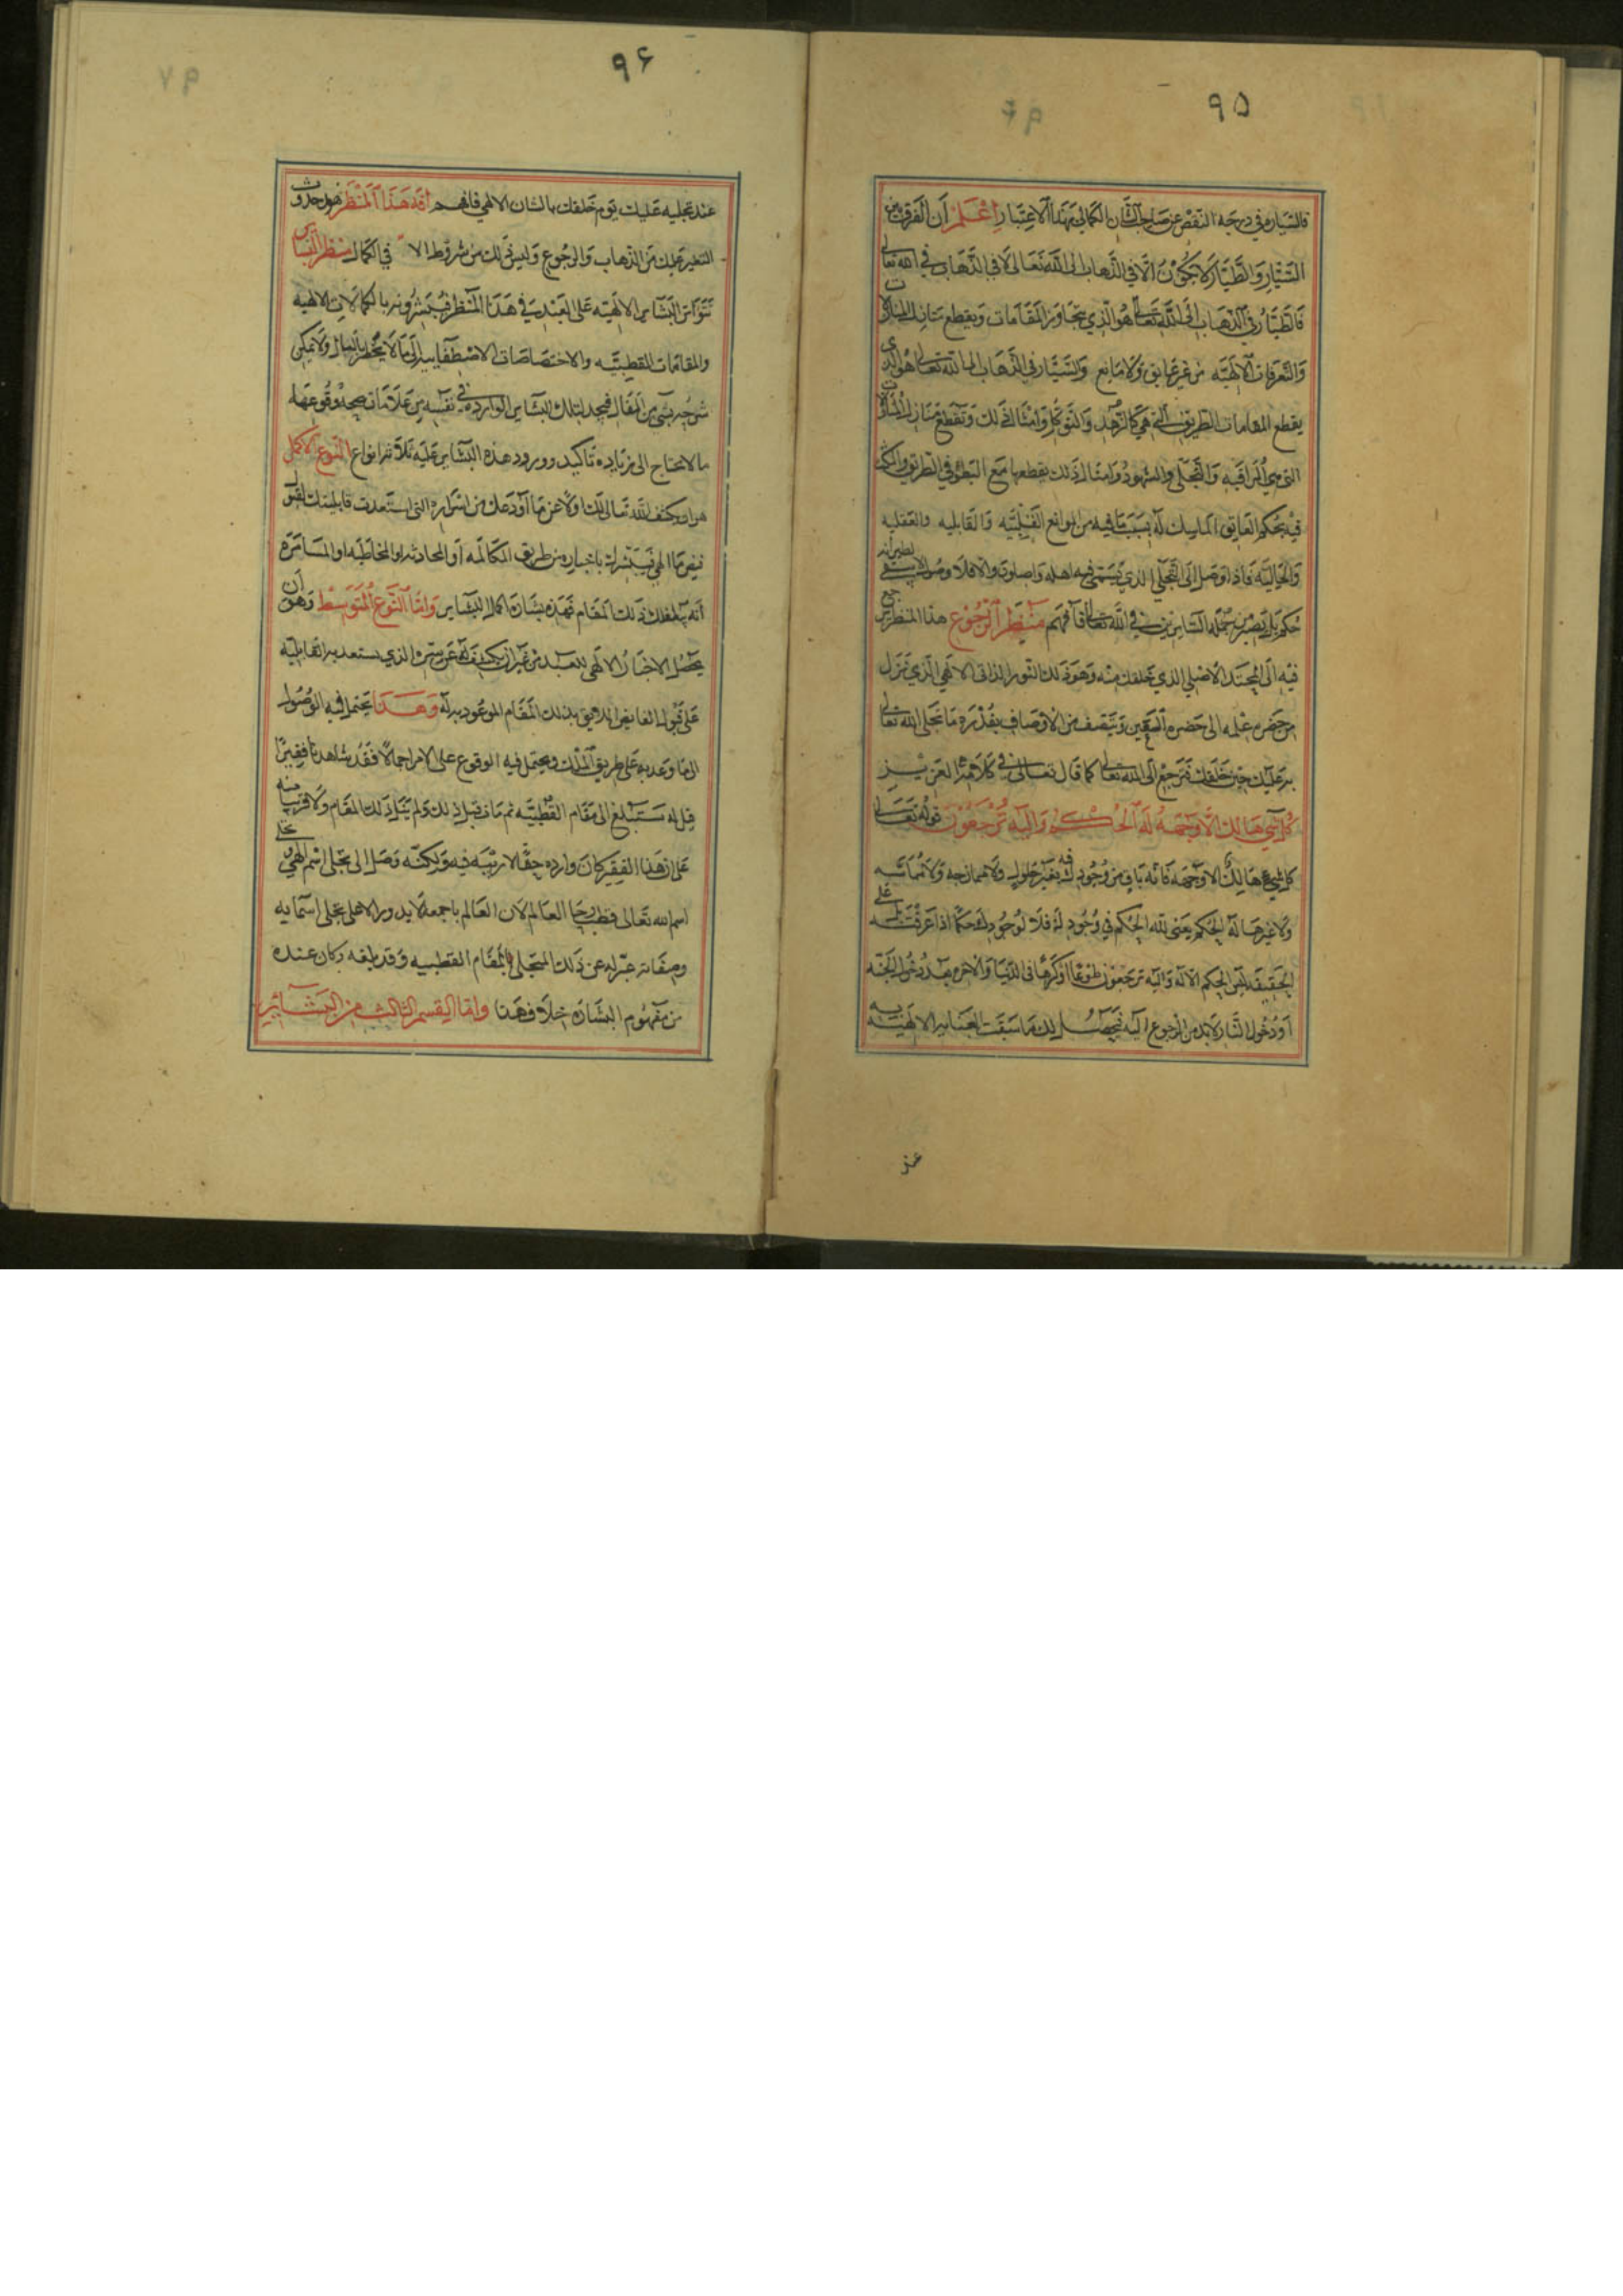 ٩٥
فالسياره في درجه النقص عن صاحب الشان الكمالي بهذا الاعتبار اعلم ان الفرق بين
السيار والطيار لا يكون الا في الذهاب الى الله تعالى لا في الذهاب في الله تعالى
فالطيار في الذهاب الى الله تعالى هو الذي يتجاوز المقامات ويقطع منازل المنازلات
والتعرفات الالهيه من غير عايق ولا مانع والسيار في الذهاب الى الله تعالى هو الذي
يقطع المقامات الطريق التي هي كالزهد والتوكل وامثال ذلك وتقطع منازل المنازلات
التي هي المراقبه والتجلي والشهود وامثال ذلك يقطعها مع البطو في الطريق
فيه بحكم العايق الماسك له بسبب ما فيه من الموانع القلبيه والقابليه والعقليه
والخياليه فاذا وصل الى التجلي الذي يسمى فيه اهله واصلون والا فلا وصول لا يبقى
حكم بل يصير من جمله الساير ين في الله تعالى فافهم منظر الرجوع هذا المنظر ترجع
فيه الى المحتد الاصلي الذي خلقت منه وهو ذلك النور الذاتي الالهي الذي نزل
من حضره علمه الى حضره التعين ويتصف من الاوصاف بقدره ما تجلى الله تعالى
به عليك حين خلقك فترجع الى الله تعالى كما قال تعالى في كلامه العزيز
كل شي هالك الا وجهه له الحكم واليه ترجعون قوله تعالى
كل شيء هالك الا وجهه فانه باق من وجود له فيه بغير حلول ولا ممازجه ولا مماسه
ولا غيرها له الحكم يعني لله الحكم في وجود له فلا لوجود لك حكما اذا عرفت على
الحقيقه ليس الحكم الا له واليه ترجعون طوعا او كرها في الدنيا والاخره بعد دخول الجنه
او دخول النار لا بد من الرجوع اليه فيحصل لك ما سبقت العنايه الالهيه به
عند
٩۶
عند تجليه عليك يوم خلقك بالشان الالهي فافهم افه هذا المنظر هو حدوث
التغير عليك من الذهاب والرجوع وليس ذلك من شروط الا في الكمال منظر البشاير
تتواتر البشاير الالهيه على العبد في هذا المنظر فيبشرونه بالكمالات الالهيه
والمقامات القطبيه والاختصاصات الاصطفاييه الى ما لا يخطر بالبال ولا يمكن
شرحه بشي من المقال فيجد لتلك البشاير الوارده في نفسه من علامات صحه وقوعها
ما لا يحتاج الى زياده تاكيد وورود هذه البشاير عليه ثلاثه انواع النوع الاكمل
هو ان يكشف الله تعالى لك اولا عن ما اودعك من اسراره التي استعدت قابليتك لقبول
فيض ما الهي فيبشرك باخباره من طريق المكالمه او المحادثه او المخاطبه او المسامره
انه يبلغك ذلك المقام فهذه بشاره اكمل البشاير واما النوع المتوسط وهو ان
يحصل الاخبار الالهي للعبد من غير ان يكشف له عن سره الذي يستعد به القابليه
على قبول الفايض اللايق بذلك المقام الموعود به له وهذا يحتمل فيه الوصول
الى ما وعد به على طريق الملك ويحتمل فيه الوقوع على الامر اجمالا فقد شاهدنا فقيرا
قيل له ستبلغ الى مقام القطبيه ثم مات قبل ذلك ولم ينل ذلك المقام ولا قريبا منه
على ان هذا الفقير كان وارده حقا لا ريبه فيه ولكنه وصل الى تجلي اسم الهي
اسم الله تعالى قطب رحا العالم لان العالم باجمعه لا يدور الا على تجلي اسمايه
وصفاته عبر له عن ذلك التجلي بالمقام القطبيه وقد بلغه وكان عنده
من مفهوم البشاره خلاف هذا واما القسم الثالث من البشاير